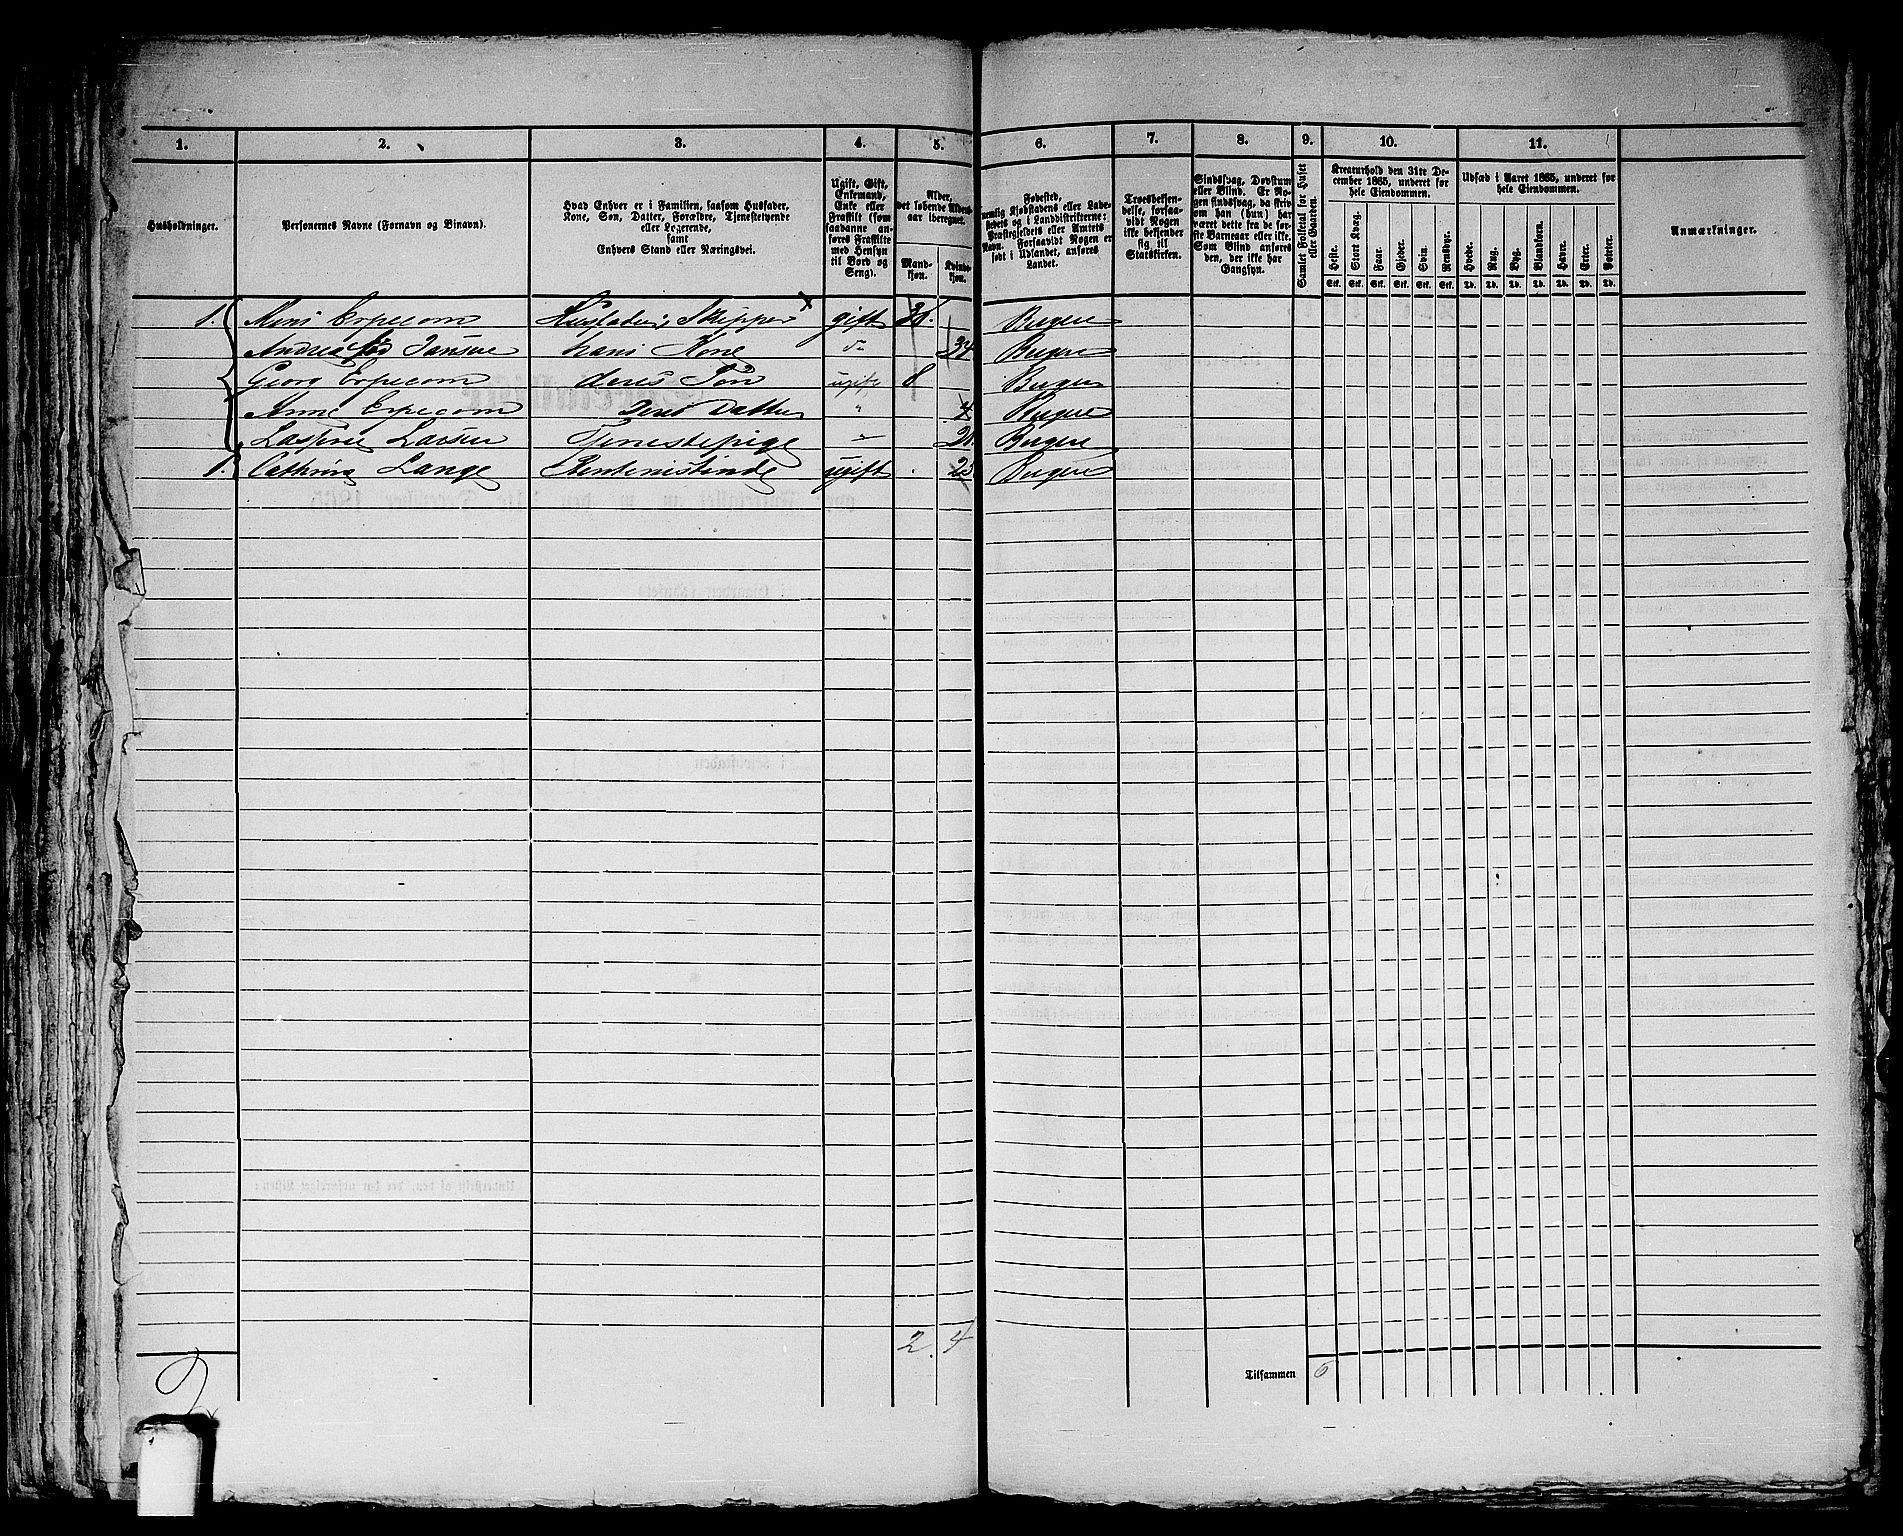 1. 2. 3. 4. 5. 6. 7. 8. 9. 10. 11.
Husholdninger.
Personernes Navne (Fornavn og Binavn).
Hvad Enhver er i Familien, saasom Husfader,
Kone, Søn, Datter, Forældre, Tjenestetyende
eller Logerende,
samt
Enhvers Stand eller Næringsvei.
Ugift, Gift,
Enkemand,
Enke eller
Fraskilt (som
saadanne an-
føres Fraskilte
med Hensyn
til Bord og
Seng).
Alder,
det løbende Alders-
aar iberegnet.
Mand-
kjøn.
Kvind-
kjøn.
Fødested,
nemlig Kjøbstadens eller Lade-
stedets og i Landdistrikterne:
Præstegjeldets eller Amtets
Navn. Forsaavidt Nogen er
født i Udlandet, anføres
Landet.
Troesbekjen-
delse, forsaa-
vidt Nogen
ikke bekjender
sig til
Statskirken.
Sindssvag, Døvstum
eller Blind. Er No-
gen sindssvag, da skriv
om han (hun) har
været dette fra de før-
ste Barneaar eller ikke.
Som Blind anføres
den, der ikke har
Gangsyn.
Samlet Folketal for Huset
eller Gaarden.
Kreaturhold den 31te De-
cember 1865, underet for
hele Eiendommen.
Heste. Stort Kvæg. Faar. Gjeder. Svin. Rensdyr.
Stk. Stk. Stk. Stk. Stk. Stk.
Udsæd i Aaret 1865, underet for
hele Eiendommen.
Hvede. Rug. Byg. Blandkorn. Havre. Erter. Poteter.
Td. Td. Td. Td. Td. Td. Td.
Anmærkninger.
1. Erpecom Husfader, Skipper gift 36. Bergen
Andrea fød Jansen hans Kone 34 Bergen
Georg Erpecom deres Søn ugift 8 Bergen
Anne Erpecom Deres Datter " 4 Bergen
Larsen Tjenestepige Bergen
1. Cathrina Lange Rentenistinde ugift Bergen
2. 4
Tilsammen 6
2